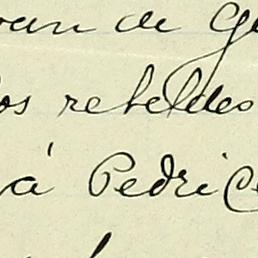 van de Ge
los rebeldes
á Pedri Ce